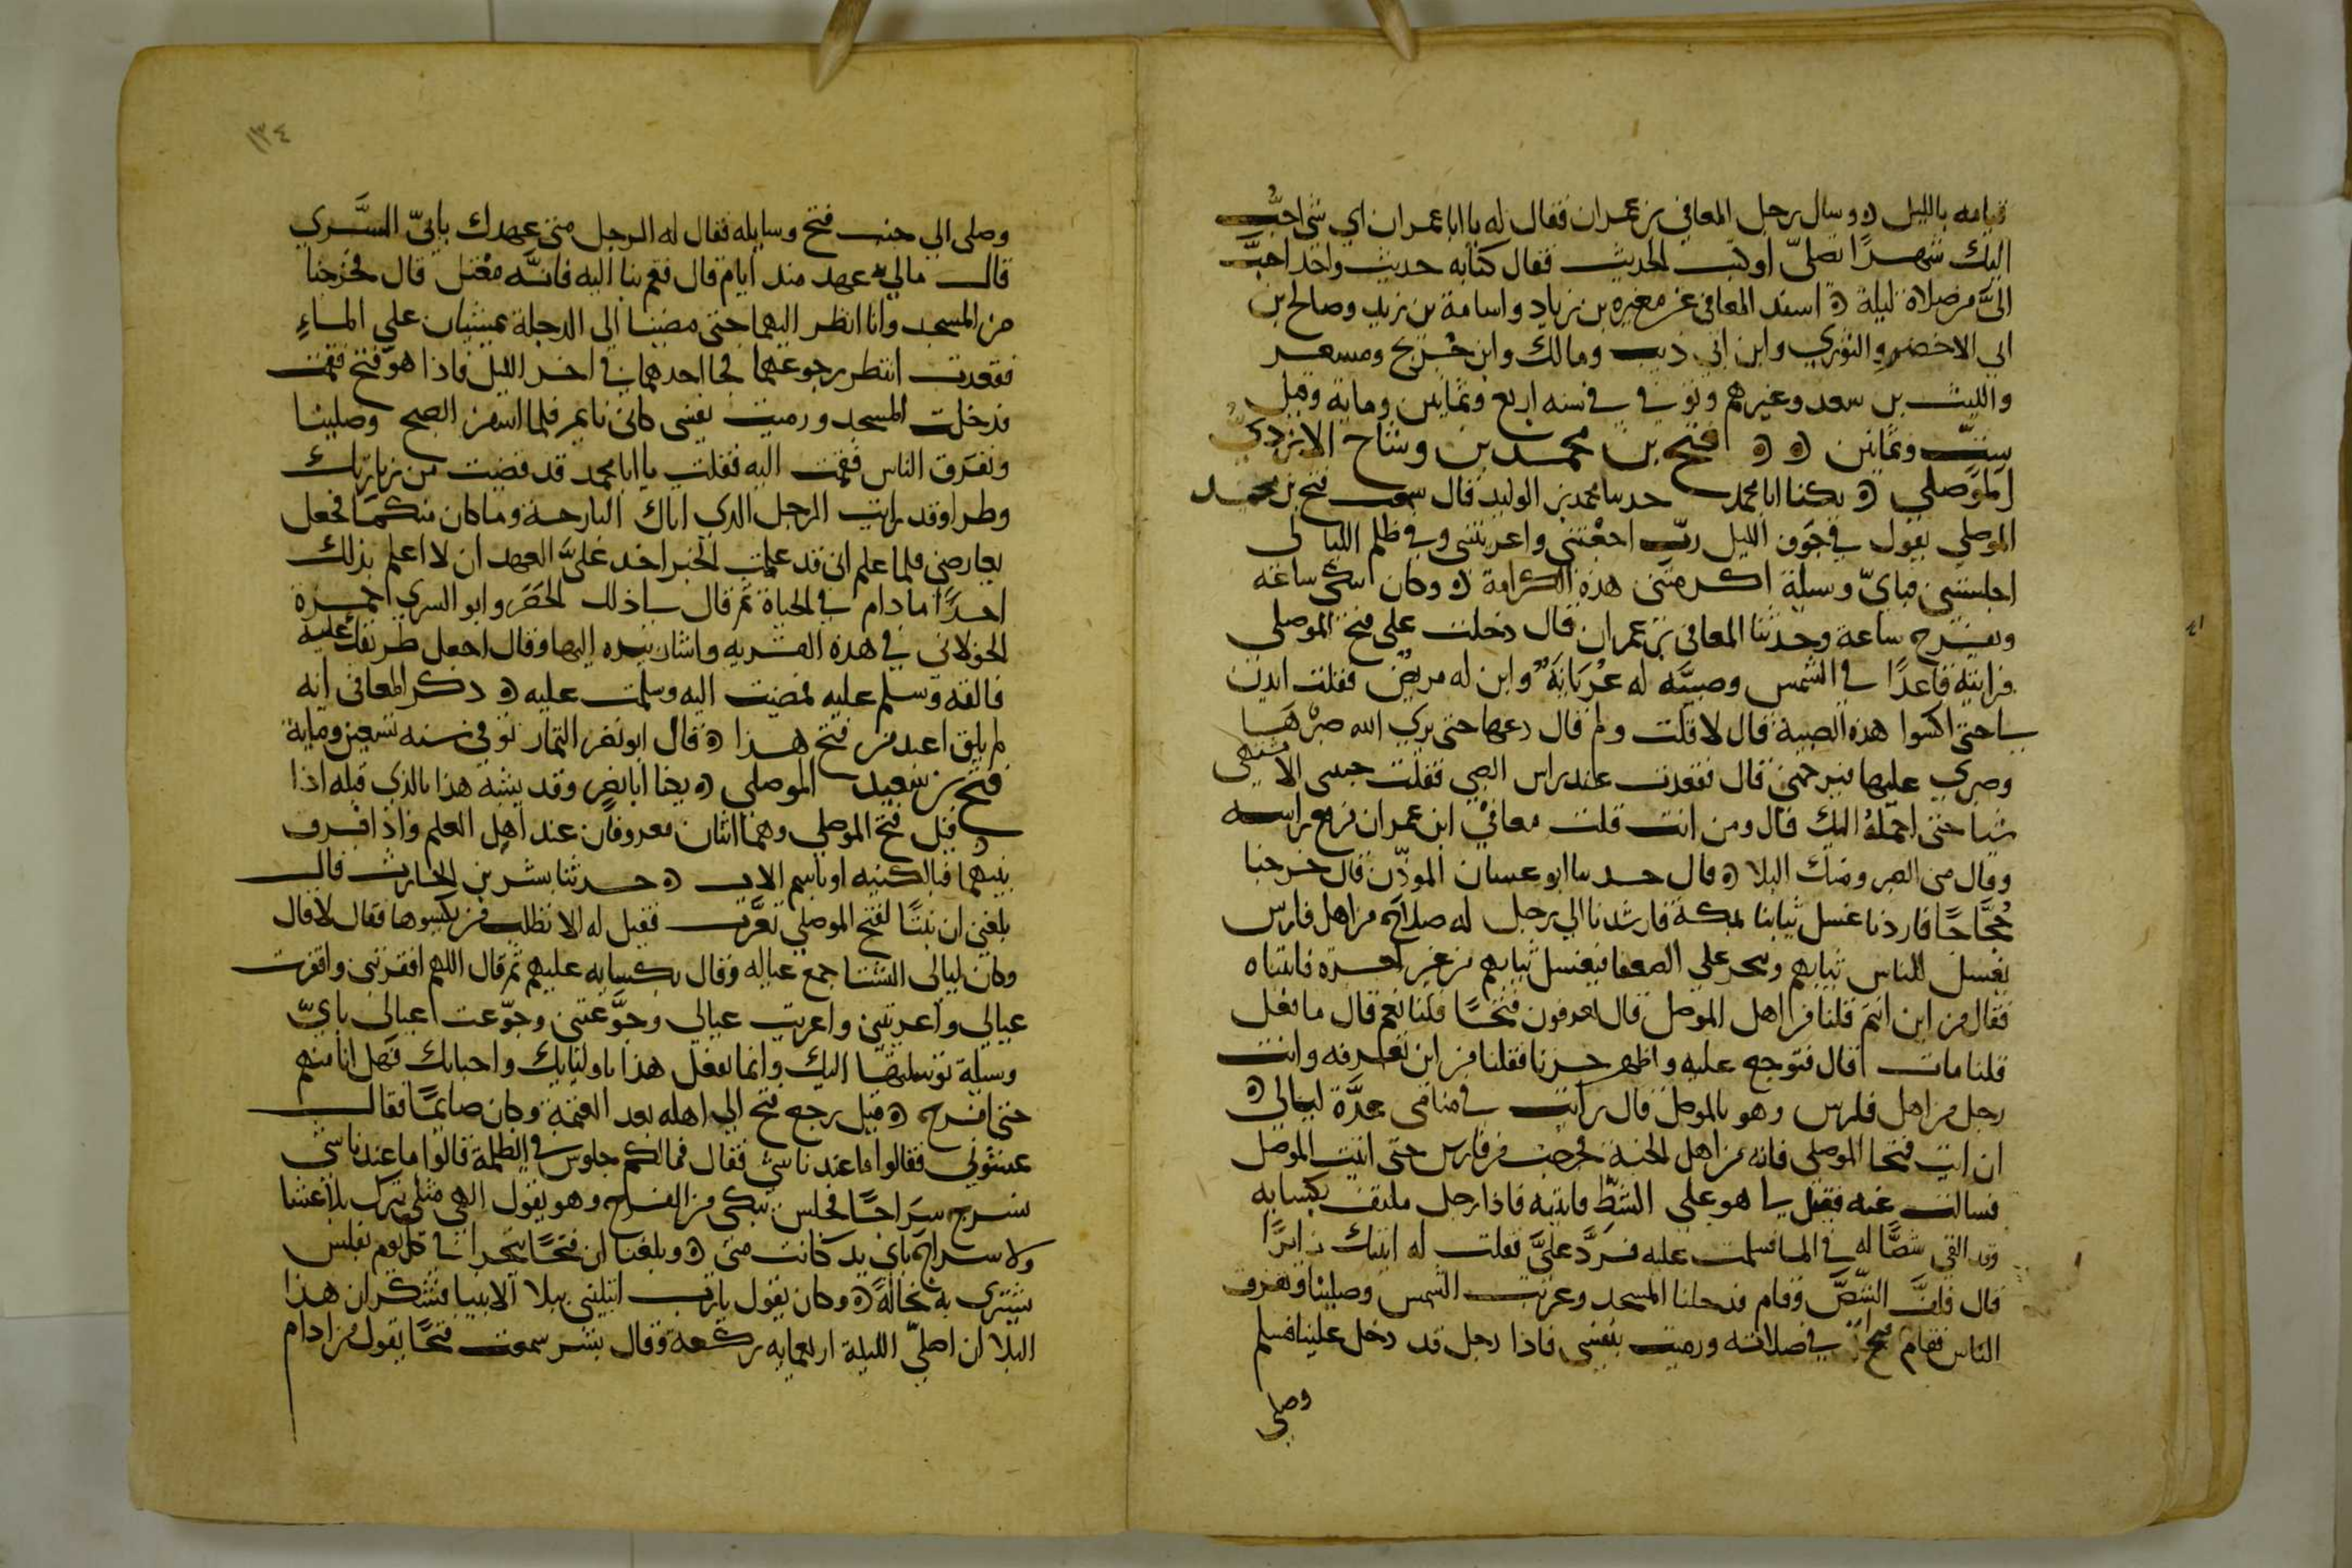 قيامه بالليل ۞ وسال رجل المعافي بن عمران فقال له يا ابا عمران اي شي احبُّ
اليك شهرًا تصلّي او كتب الحديث فقال كتابه حديث واحد احبّ
اليَّ من صلاة ليلة ۞ اسند المعافي عن مغيره بن زياد واسامة بن زيد وصالح بن
ابي الاخضر والثوري وابن ابي ذيب ومالك وابن جُريج ومسعر
والليث بن سعد وغيرهم وتوفي في سنه اربع وثمانين وماية وقيل
ستّ وثمانين ۞ ۞ فتح بن محمد بن وشاح الازديُّ
الموصلي ۞ يكنا ابا محمد حدثنا محمد بن الوليد قال سمعت فتح بن محمد
الموصلي يقول في جوف الليل ربّ اجعتني واعريتني وفي ظلم الليالي
اجلستني فبايّ وسيلة اكرمتني هذه الكرامة ۞ وكان يبكي ساعة
ويفرح ساعة وحدثنا المعافي بن عمران قال دخلت علي فتح الموصلي
فرايته قاعدًا في الشمس وصبيّه له عُريانةٌ وابن له مريض فقلت ايذن
لي حتي اكسوا هذه الصبية قال لا قلت ولم قال دعها حتي يري الله ضرّها
وصبري عليها فيرحمني قال فقعدت عند راس الصبي فقلت حبيبي الا تشتهي
شيا حتي احملهُ اليك قال ومن انت قلت معافي ابن عمران فرفع راسه
وقال مني الصبر ومنك البلا ۞ قال حدثنا ابو غسان الموذّن قال خرجنا
حُجَّاجًا فاردنا غسل ثيابنا بمكة فارشدنا الي رجل له صلاح من اهل فارس
يغسل للناس ثيابهم ويتجر علي الضعفا فيغسل ثيابهم من غير اجره فاتيناه
فقال من اين انتم قلنا من اهل الموصل قال تعرفون فتحًا قلنا نعم قال ما فعل
قلنا مات قال فتوجع عليه واظهر حزنا فقلنا من اين تعرفه وانت
رجل من اهل فارس وهو بالموصل قال رايت في منامي عدَّة ليالي ۞
ان ايت فتحا الموصلي فانه من اهل الجنة فخرجت من فارس حتي اتيت الموصل
فسالت عنه فقيل لي هو علي الشطّ فاتيته فاذا رجل ملتف بكسايه
وقد القي شصًّا له في الما فسلمت عليه فردَّ عليَّ فقلت له اتيتك زايرًا
قال فلفَّ الشصَّ وقام فدخلنا المسجد وغربت الشمس وصلينا وتفرق
الناس فقام فتح في صلاته ورميت بنفسي فاذا رجل قد دخل علينا فسلم
وصلي
١٣٤
وصلي الي جنب فتح وسايله فقال له الرجل متي عهدك بابيّ السَّري
قال مالي به عهد منذ ايام قال فقم بنا اليه فانَّه معْتل قال فخرجنا
من المسجد وانا انظر اليهما حتي مضيا الي الدجلة يمشيان علي الماءِ
فقعدت انتظر رجوعهما فجا احدهما في اخر الليل فاذا هو فتح فقمت
فدخلت المسجد ورميت نفسي كاني نايم فلما اسفر الصبح وصلينا
وتفرَق الناس فقمت اليه فقلت يا ابا محمد قد قضيت من زيارتك
وطرا وقد رايت الرجل الذي اتاك البارحة وما كان منكما فجعل
يعارضني فلما علم اني قد علمت الخبر اخذ عليَّ العهد ان لا اعلم بذلك
احدًا ما دام في الحياة ثم قال لي ذلك الخضر وابو السري حمزة
الخولاني في هذه القريه واشار بيده اليها وقال اجعل طريقك عليه
فالقه وسلم عليه فمضيت اليه وسلمت عليه ۞ ذكر المعافي انه
لم يلق اعبد من فتح هذا ۞ قال ابو نصر التمار توفي سنه سبعين وماية
فتح بن سعيد الموصلي ۞ يكنا ابا نصر وقد يشبه هذا بالذي قبله اذا
قيل فتح الموصلي وهما اثنان معروفان عند اهل العلم واذا فرق
بينهما فبالكنيه او باسم الاب ۞ حدثنا بشر بن الحارث قال
بلغني ان بنتًا لفتح الموصلي تعرَّت فقيل له الا تطلب من يكسوها فقال لا قال
وكان ليالي الشتا جمع عياله وقال بكسايه عليهم ثم قال اللهم افقرتني وافقرت
عيالي واعريتني واعريت عيالي وجوَّعتني وجوّعت عيالي بايّ
وسيلة توسلتها اليك وانما تفعل هذا باوليايك واحبابك فهل انا منهم
حتي افرح ۞ قيل رجع فتح الي اهله بعد العتمة وكان صايمًا فقال
عشوني فقالوا ما عندنا شي فقال فما لكم جلوس في الظلمة قالوا ما عندنا شي
نسرج سراجًا فجلس يبكي من الفرح وهو يقول الهي مثلي يترك بلا عشا
ولا سراج باي يد كانت مني ۞ وبلغنا ان فتحًا يتجرا في كل يوم بفلس
يشتري به نخالةً ۞ وكان يقول يارب ابتليتني ببلا الانبيا فشكر ان هذا
البلا ان اصلّي الليلة اربعمايه ركعة وقال بشر سمعت فتحًا يقول من ادام